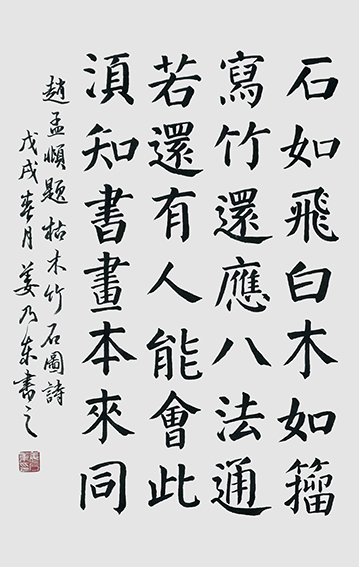 石如飛白木如籀
寫竹還應八法通
若還有人能會此
須知書畫本來同
趙孟頫題枯木竹石圖詩
戊戌春月姜乃東書之